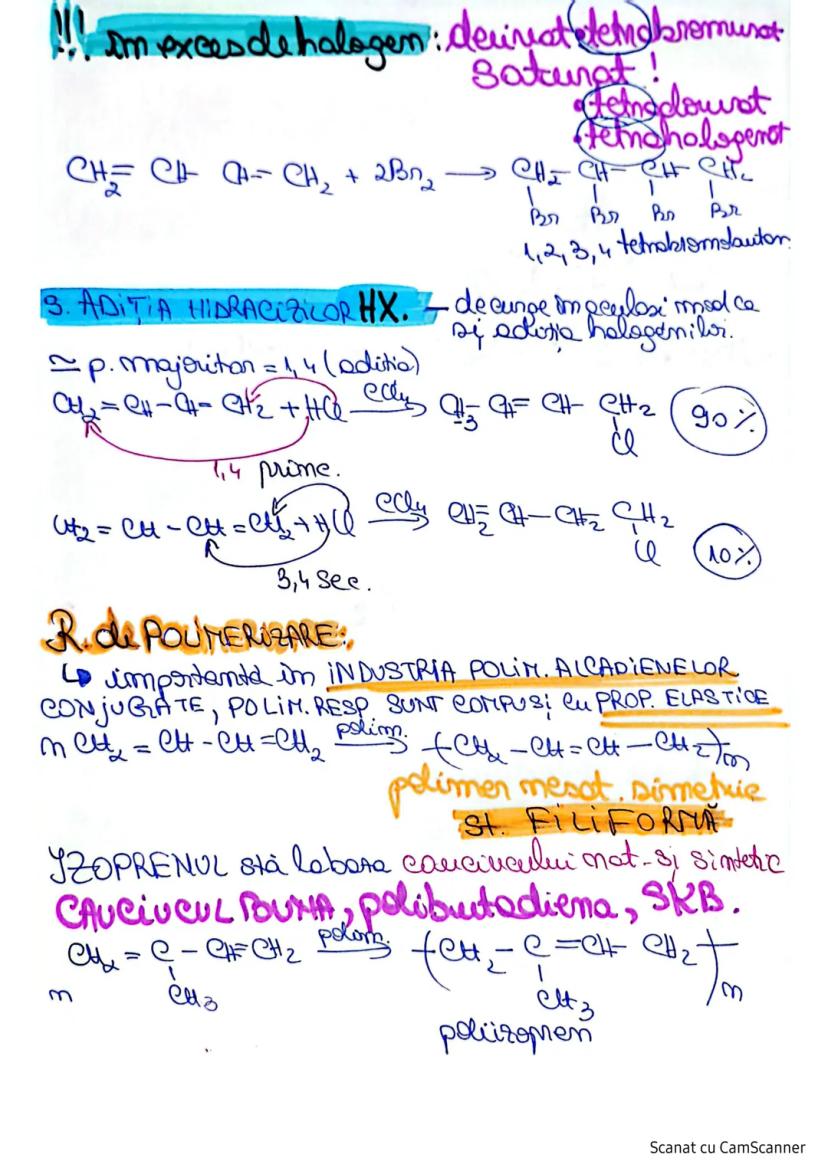 !!! în exces de halogen: derivat tetrabromurat
saturat!
• tetraclorurat
• tetrahalogenat
CH₂= CH- CH= CH₂ + 2Br₂ → CH₂- CH- CH- CH₂
Br Br Br Br
1,2,3,4 tetrabrombutan.
3. ADIȚIA HIDRACIZILOR HX. – decurge în același mod ca
și adiția halogenilor.
≃ p. majoritar = 1,4 (aditia)
CH₂=CH-CH=CH₂ + HCl CCl₄→ CH₃- CH= CH- CH₂ 90%
Cl
1,4 princ.
CH₂ = CH - CH = CH₂ + HCl CCl₄→ CH₂= CH- CH₂ CH₂
Cl 10%
3,4 sec.
R. de POLIMERIZARE:
↳ importantă în INDUSTRIA POLIM. ALCADIENELOR
CONJUGATE, POLIM. RESP SUNT COMPUSI cu PROP. ELASTICE
n CH₂ = CH - CH = CH₂ polim.→ (CH₂ - CH = CH - CH₂)n
polimer mesat. simetrie
st. FILIFORMĂ
IZOPRENUL stă la baza cauciucului nat. și sintetic
CAUCIUCUL BUNA, polibutadiena, SKB.
CH₂ = C - CH=CH₂ polim.→ (CH₂ - C =CH- CH₂)n
n CH₃ CH₃
poliizopren
Scanat cu CamScanner